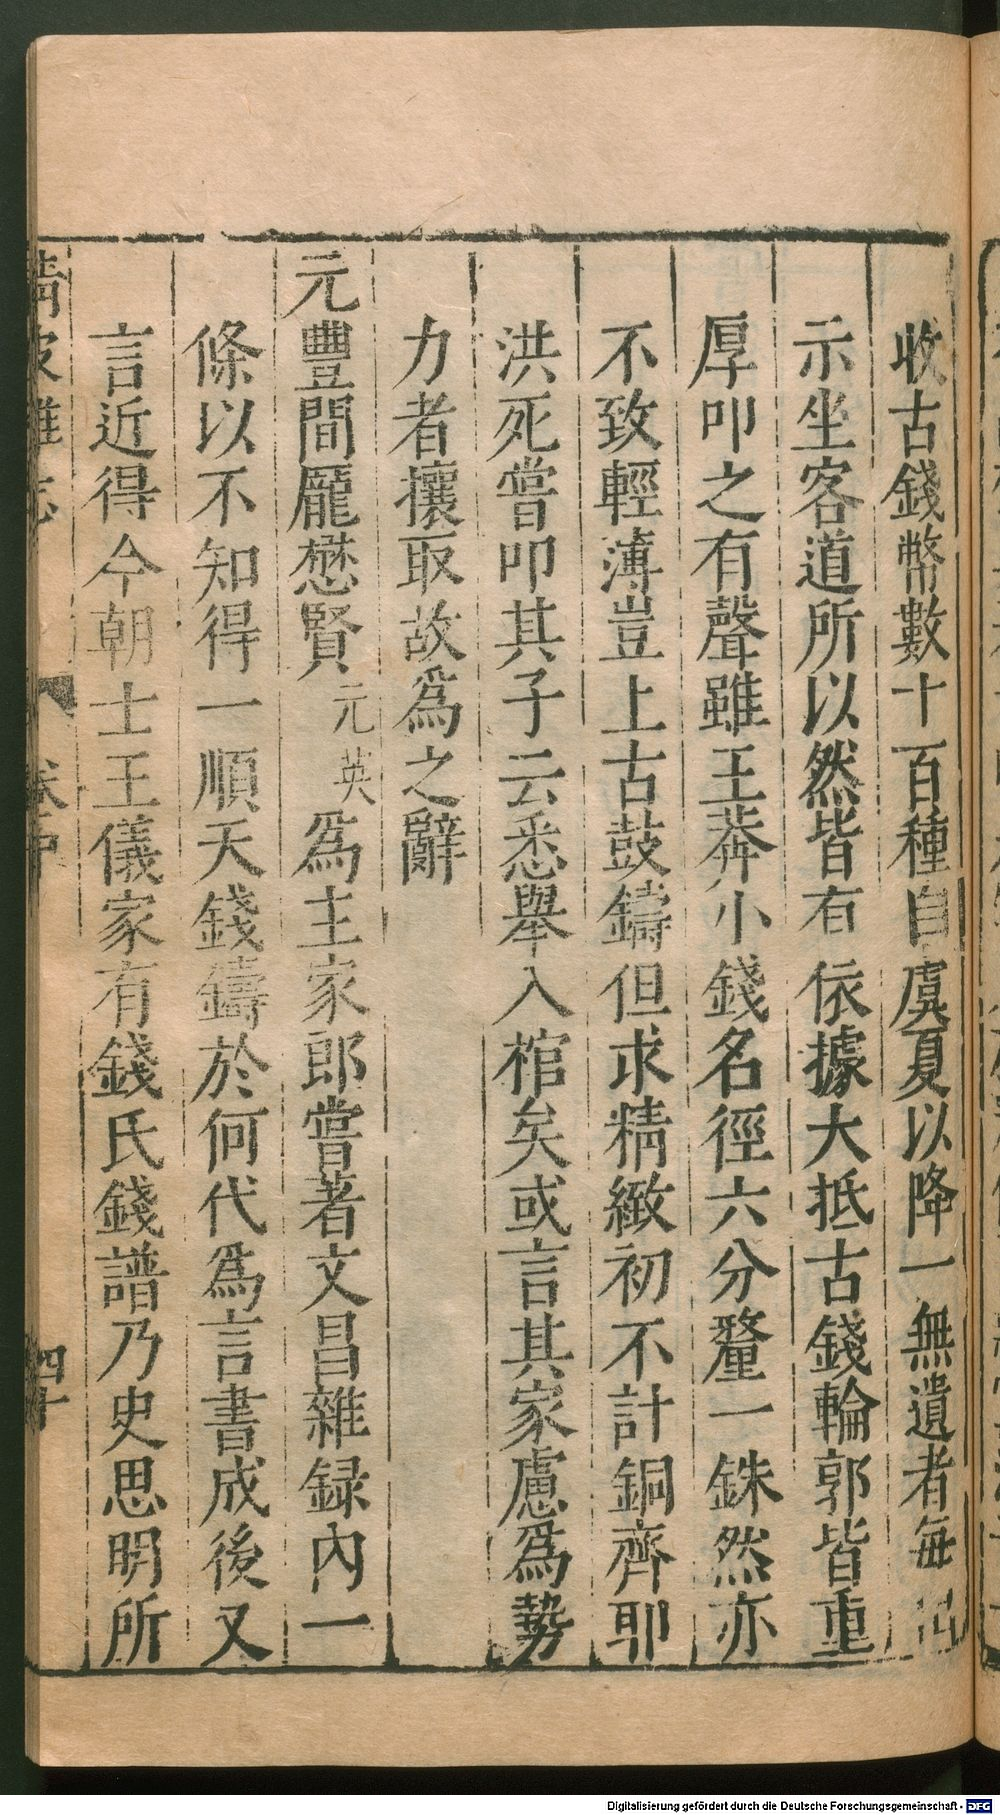 收古錢幣數十百種自虞夏以降一無遺者每
示坐客道所以然皆有依據大抵古錢輪郭皆重
厚叩之有聲雖王莽小錢名徑六分釐一銖然亦
不致輕薄豈上古鼓鑄但求精緻初不計銅齊耶
洪死嘗叩其子云悉舉入棺矣或言其家慮為勢
力者攘取故為之辭
元豐間龐懋賢元英為主家郎嘗著文昌雜録內一
條以不知得一順天錢鑄於何代為言書成後又
言近得今朝士王儀家有錢氏錢譜乃史思明所
四十
Digitalisierung gefördert durch die Deutsche Forschungsgemeinschaft - DFG